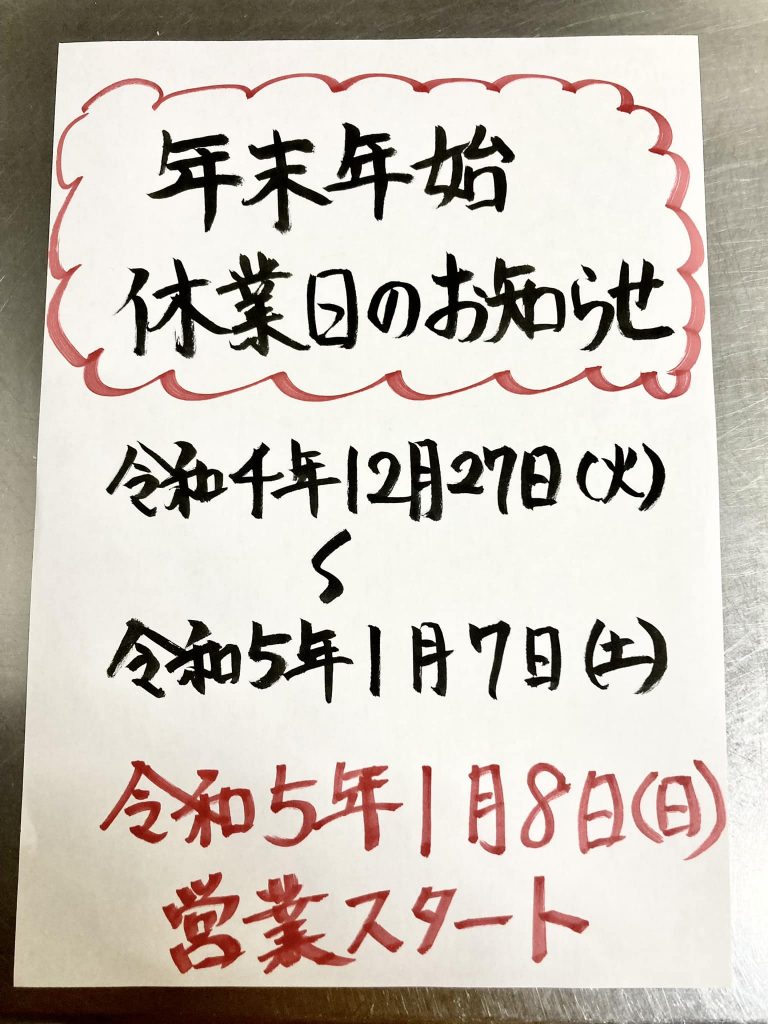 年末年始
休業日のお知らせ
令和4年12月27日(火)
〜
令和5年1月7日(土)
令和5年1月8日(日)
営業スタート